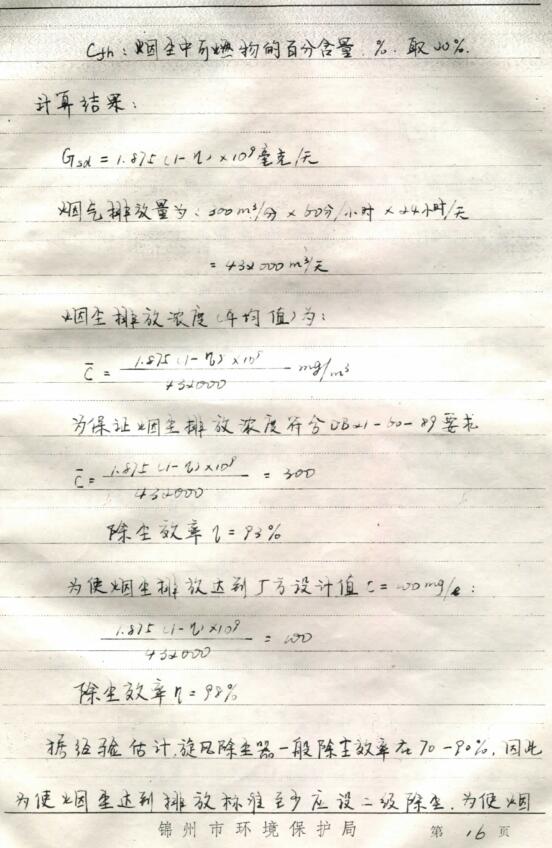 Cfh：烟尘中可燃物的百分含量.%.取20%.
计算结果：
Gsd = 1.875(1-η)×10⁹毫克/天
烟气排放量为：300m³/分×60分/小时×24小时/天
= 432000m³/天
烟尘排放浓度(平均值)为：
C̄ = 1.875(1-η)×10⁹ / 432000 mg/m³
为保证烟尘排放浓度符合DB21-60-89要求
C̄ = 1.875(1-η)×10⁹ / 432000 = 300
除尘效率η=93%
为使烟尘排放达到厂方设计值C=100mg/：
1.875(1-η)×10⁹ / 432000 = 100
除尘效率η=98%
据经验估计,旋风除尘器一般除尘效率在70-90%,因此
为使烟尘达到排放标准至少应设二级除尘.为使烟
锦州市环境保护局 第16页